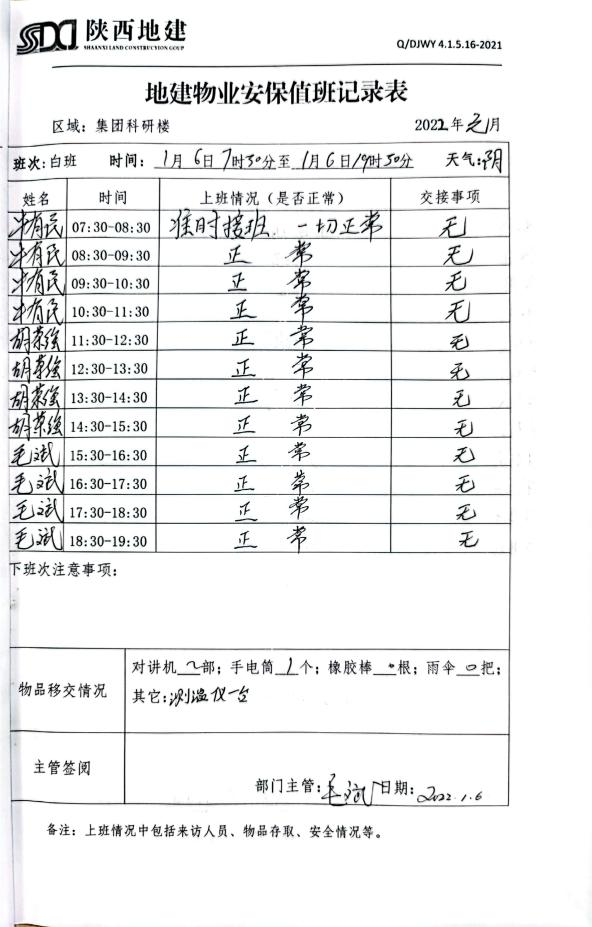 SDCJ 陕西地建
SHAANXI LAND CONSTRUCTION GOUP
Q/DJWY 4.1.5.16-2021
地建物业安保值班记录表
区域：集团科研楼 2022年元月
班次：白班 时间：1月6日7时30分至1月6日19时30分 天气：阴
姓名 时间 上班情况（是否正常） 交接事项
牛有民 07:30-08:30 准时接班. 一切正常 无
牛有民 08:30-09:30 正常 无
牛有民 09:30-10:30 正常 无
牛有民 10:30-11:30 正常 无
胡荣强 11:30-12:30 正常 无
胡荣强 12:30-13:30 正常 无
胡荣强 13:30-14:30 正常 无
胡荣强 14:30-15:30 正常 无
毛斌 15:30-16:30 正常 无
毛斌 16:30-17:30 正常 无
毛斌 17:30-18:30 正常 无
毛斌 18:30-19:30 正常 无
下班次注意事项：
物品移交情况
对讲机2部；手电筒1个；橡胶棒 根；雨伞0把；
其它：测温仪一台
主管签阅
部门主管：毛斌 日期：2022.1.6
备注：上班情况中包括来访人员、物品存取、安全情况等。